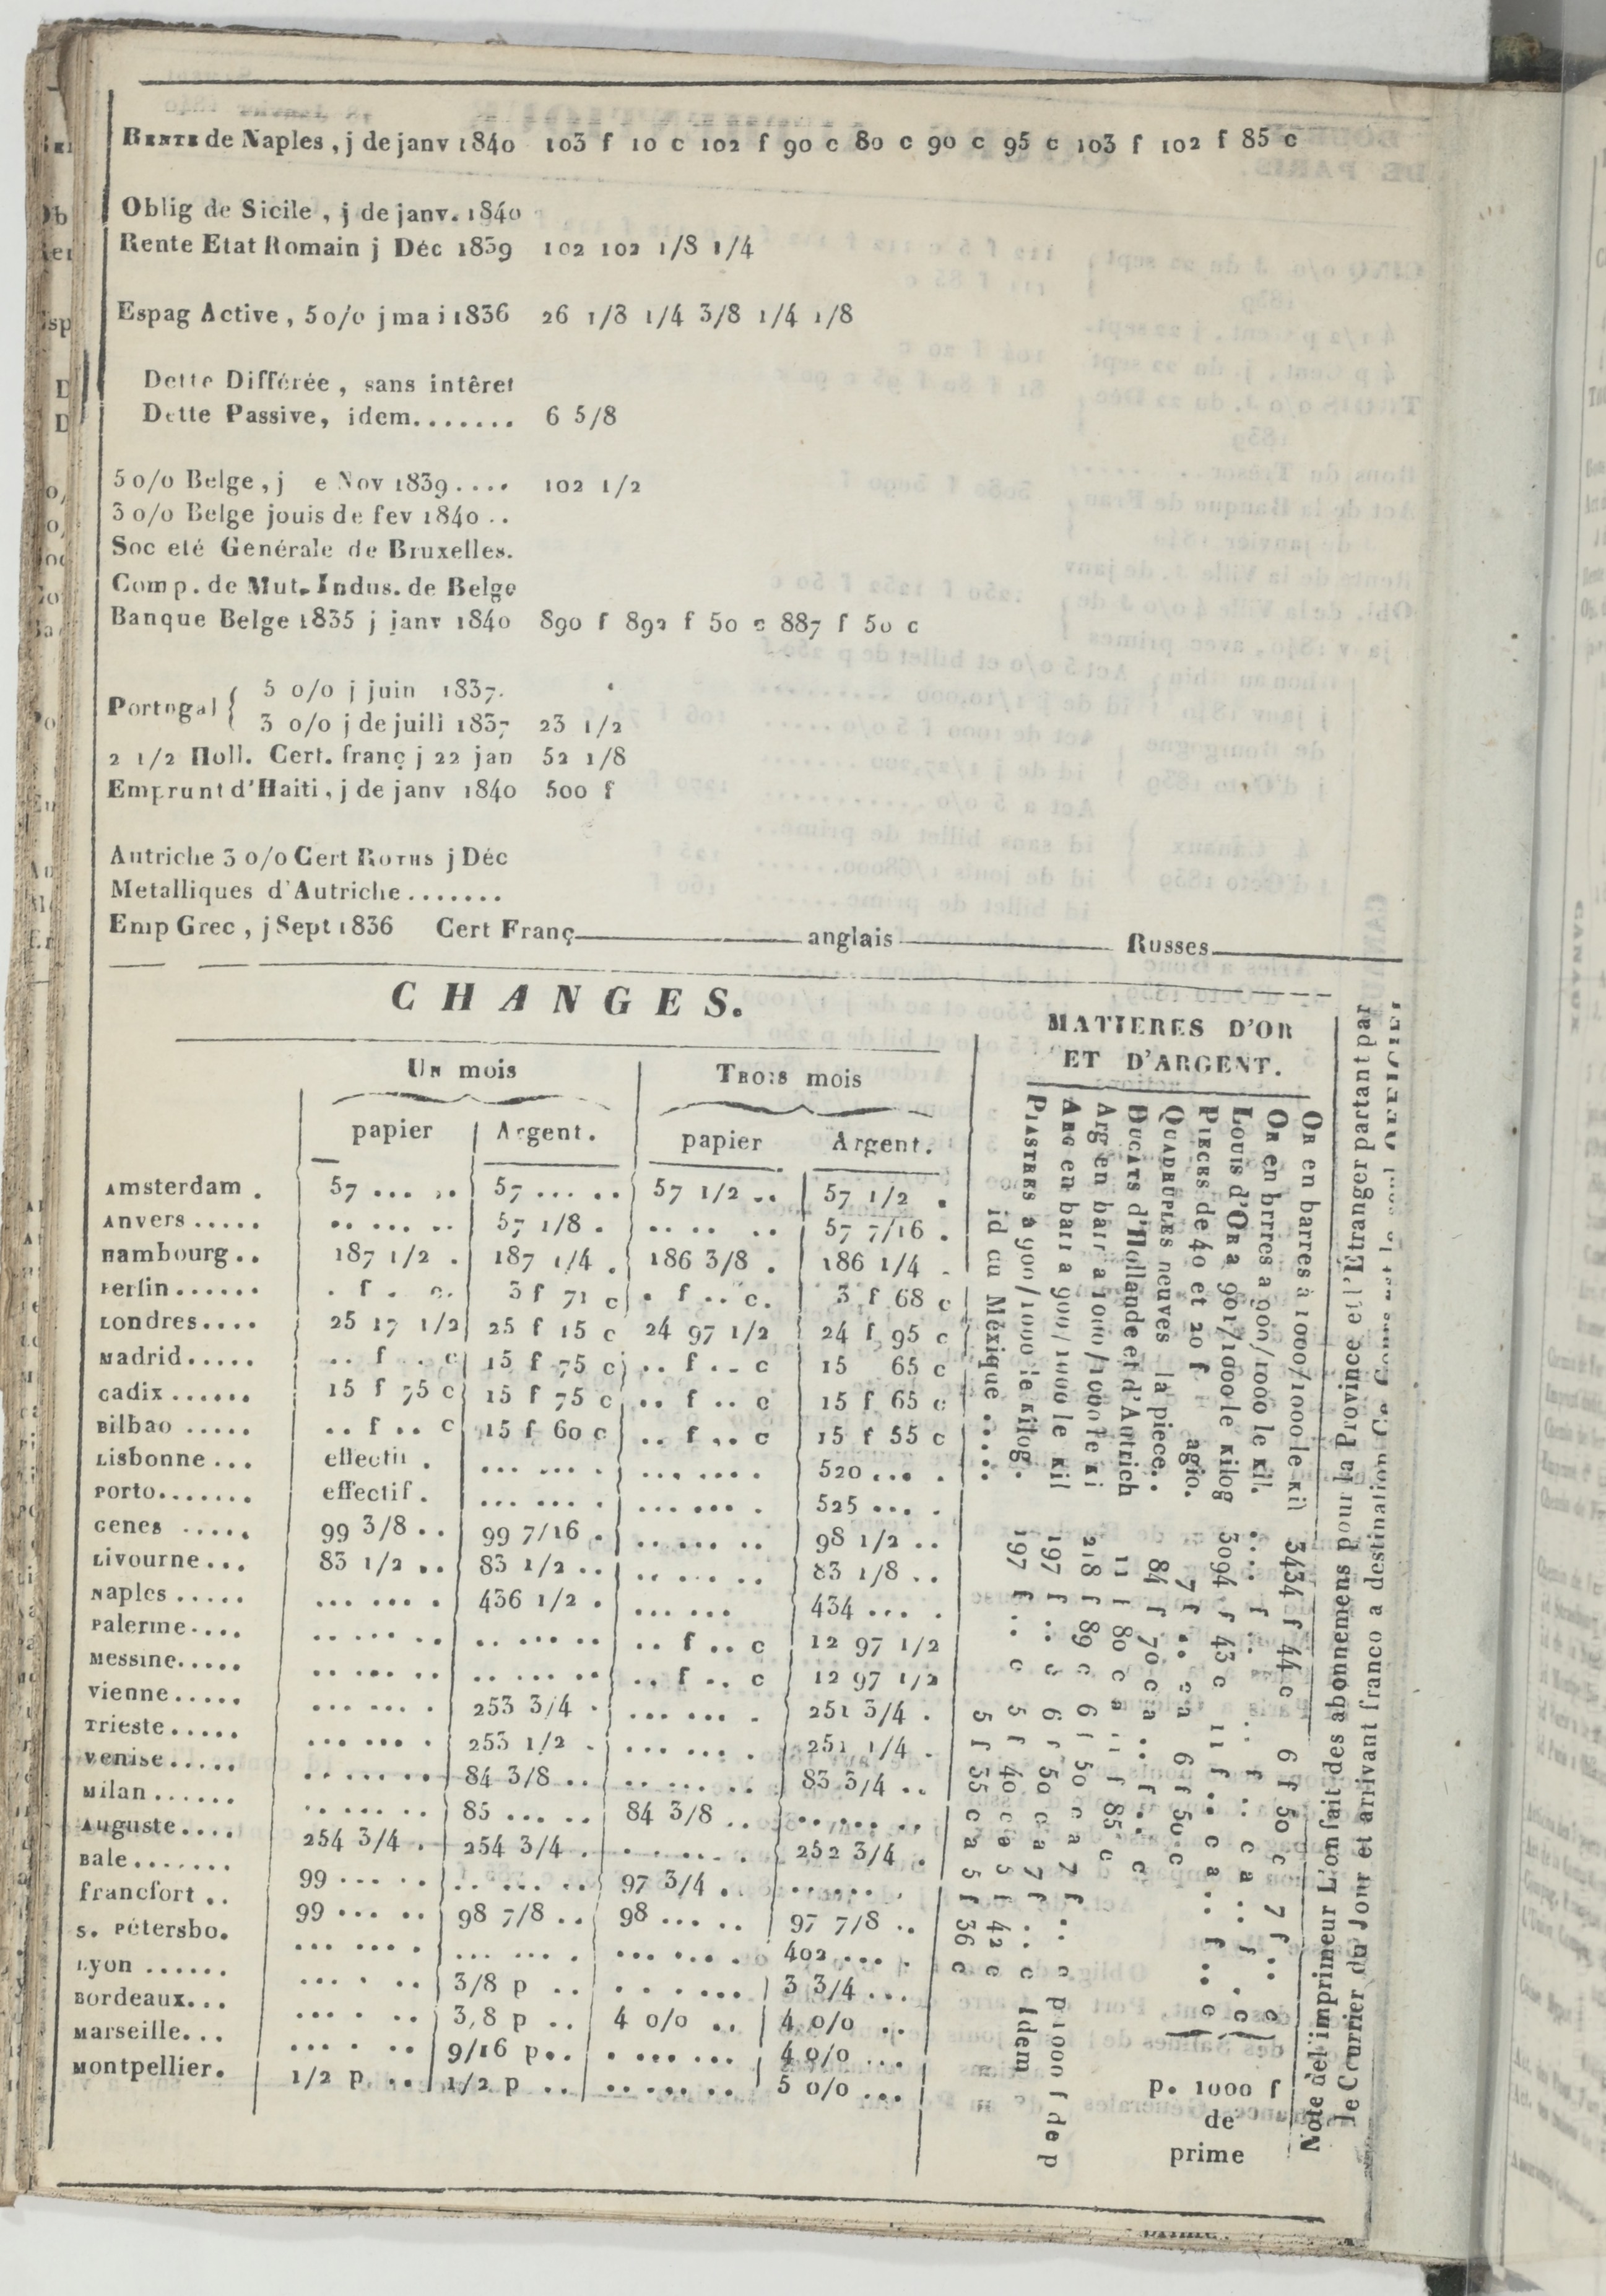 RENTE de Naples, j de janv 1840 103 f 10 c 102 f 90 c 80 c 90 c 95 c 103 f 102 f 85 c
Oblig de Sicile, j de janv. 1840
Rente Etat Romain j Déc 1839 102 102 1/8 1/4
Espag Active, 5 o/o j mai 1836 26 1/8 1/4 3/8 1/4 1/8
Dette Différée, sans intêret
Dette Passive, idem....... 6 5/8
5 o/o Belge, j e Nov 1839.... 102 1/2
3 o/o Belge jouis de fev 1840..
Soc eté Genérale de Bruxelles.
Comp. de Mut. Indus. de Belge
Banque Belge 1835 j janv 1840 890 f 892 f 50 c 887 f 50 c
Portugal { 5 o/o j juin 1837.
3 o/o j de juill 1837 23 1/2
2 1/2 Holl. Cert. franç j 22 jan 52 1/8
Emprunt d'Haiti, j de janv 1840 500 f
Autriche 3 o/o Cert ROTHS j Déc
Metalliques d'Autriche.......
Emp Grec, j Sept 1836 Cert Franç anglais Russes
CHANGES.
UN mois TROIS mois
papier Argent. papier Argent.
Amsterdam . 57 ... .. 57 ... .. 57 1/2 .. 57 1/2 .
Anvers ..... .. ... .. 57 1/8 . .. .. .. 57 7/16 .
Hambourg .. 187 1/2 . 187 1/4 . 186 3/8 . 186 1/4 .
Berlin ...... . f . c. 3 f 71 c . f .. c. 3 f 68 c
Londres.... 25 17 1/2 25 f 15 c 24 97 1/2 24 f 95 c
Madrid..... .. f . c 15 f 75 c .. f .. c 15 65 c
Cadix ...... 15 f 75 c 15 f 75 c .. f .. c 15 f 65 c
Bilbao ..... .. f .. c 15 f 60 c .. f .. c 15 f 55 c
Lisbonne ... effectif . ... ... . ... .... 520 ... .
Porto....... effectif . ... ... . ... ... . 525 ... .
Genes ..... 99 3/8 .. 99 7/16 . .. ... .. 98 1/2 ..
Livourne... 83 1/2 .. 83 1/2 .. .. ... .. 83 1/8 ..
Naples ..... ... ... . 436 1/2 . ... ... 434 ... .
Palerme.... .. ... .. .. ... .. .. f .. c 12 97 1/2
Messine..... .. ... .. .. ... .. .. f .. c 12 97 1/2
Vienne..... ... ... . 253 3/4 . ... ... . 251 3/4 .
Trieste..... ... ... . 253 1/2 . ... ... . 251 1/4 .
Venise..... .. ... .. 84 3/8 .. .. ... .. 83 3/4 ..
Milan ...... .. ... .. 85 ... .. 84 3/8 .. .. ... ..
Auguste.... 254 3/4 . 254 3/4 . . ... .. . 252 3/4 .
Bale....... 99 ... .. .. ... .. 97 3/4 .. .. ... .
francfort .. 99 ... .. 98 7/8 .. 98 ... .. 97 7/8 ..
S. Pétersbo. ... ... . ... ... . ... ... . 402 ... .
Lyon ...... ... . .. 3/8 p .. . . .... 3 3/4 ...
Bordeaux... ... . .. 3,8 p .. 4 o/o .. 4 o/o ..
Marseille... ... . .. 9/16 p.. . ... ... 4 o/o ...
Montpellier. 1/2 p .. 1/2 p .. .. ... .. 5 o/o ...
MATIERES D'OR
ET D'ARGENT.
OR en barres à 1000/1000 le kil 3434 f 44 c 6 f 50 c 7 f .. c
OR en brres a 900/1000 le kil. .... f .. .. f .. c a .. f .. c
LOUIS d'OR a 901/1000 le kilog 3094 f 43 c 11 f .. c a .. f .. c
PIECES de 40 et 20 f agio. 7 f .. c a 6 f 50 c
QUADRUPLES neuves la piece.. 84 f 70 c a .. f .. c
DUCATS d'Hollande et d'Autrich 11 f 80 c a 11 f 85 c
Arg en barr a 1000/1000 le ki 218 f 89 c 6 f 50 c a 7 f .. c p 1000 f de p
ARG en barr a 900/1000 le kil 197 f .. c 6 f 50 c a 7 f .. c Idem
PIASTRES à 900/1000 le kilog. 197 f .. c 5 f 40 c a 5 f 42 c
id au Méxique ..... 5 f 35 c a 5 f 36 c
p. 1000 f
de
prime
Note de l'imprimeur L'on fait des abonnemens pour la Province et l'Etranger partant par
le Courrier du Jour et arrivant franco a destination Ce Cours est le seul OFFICIEL